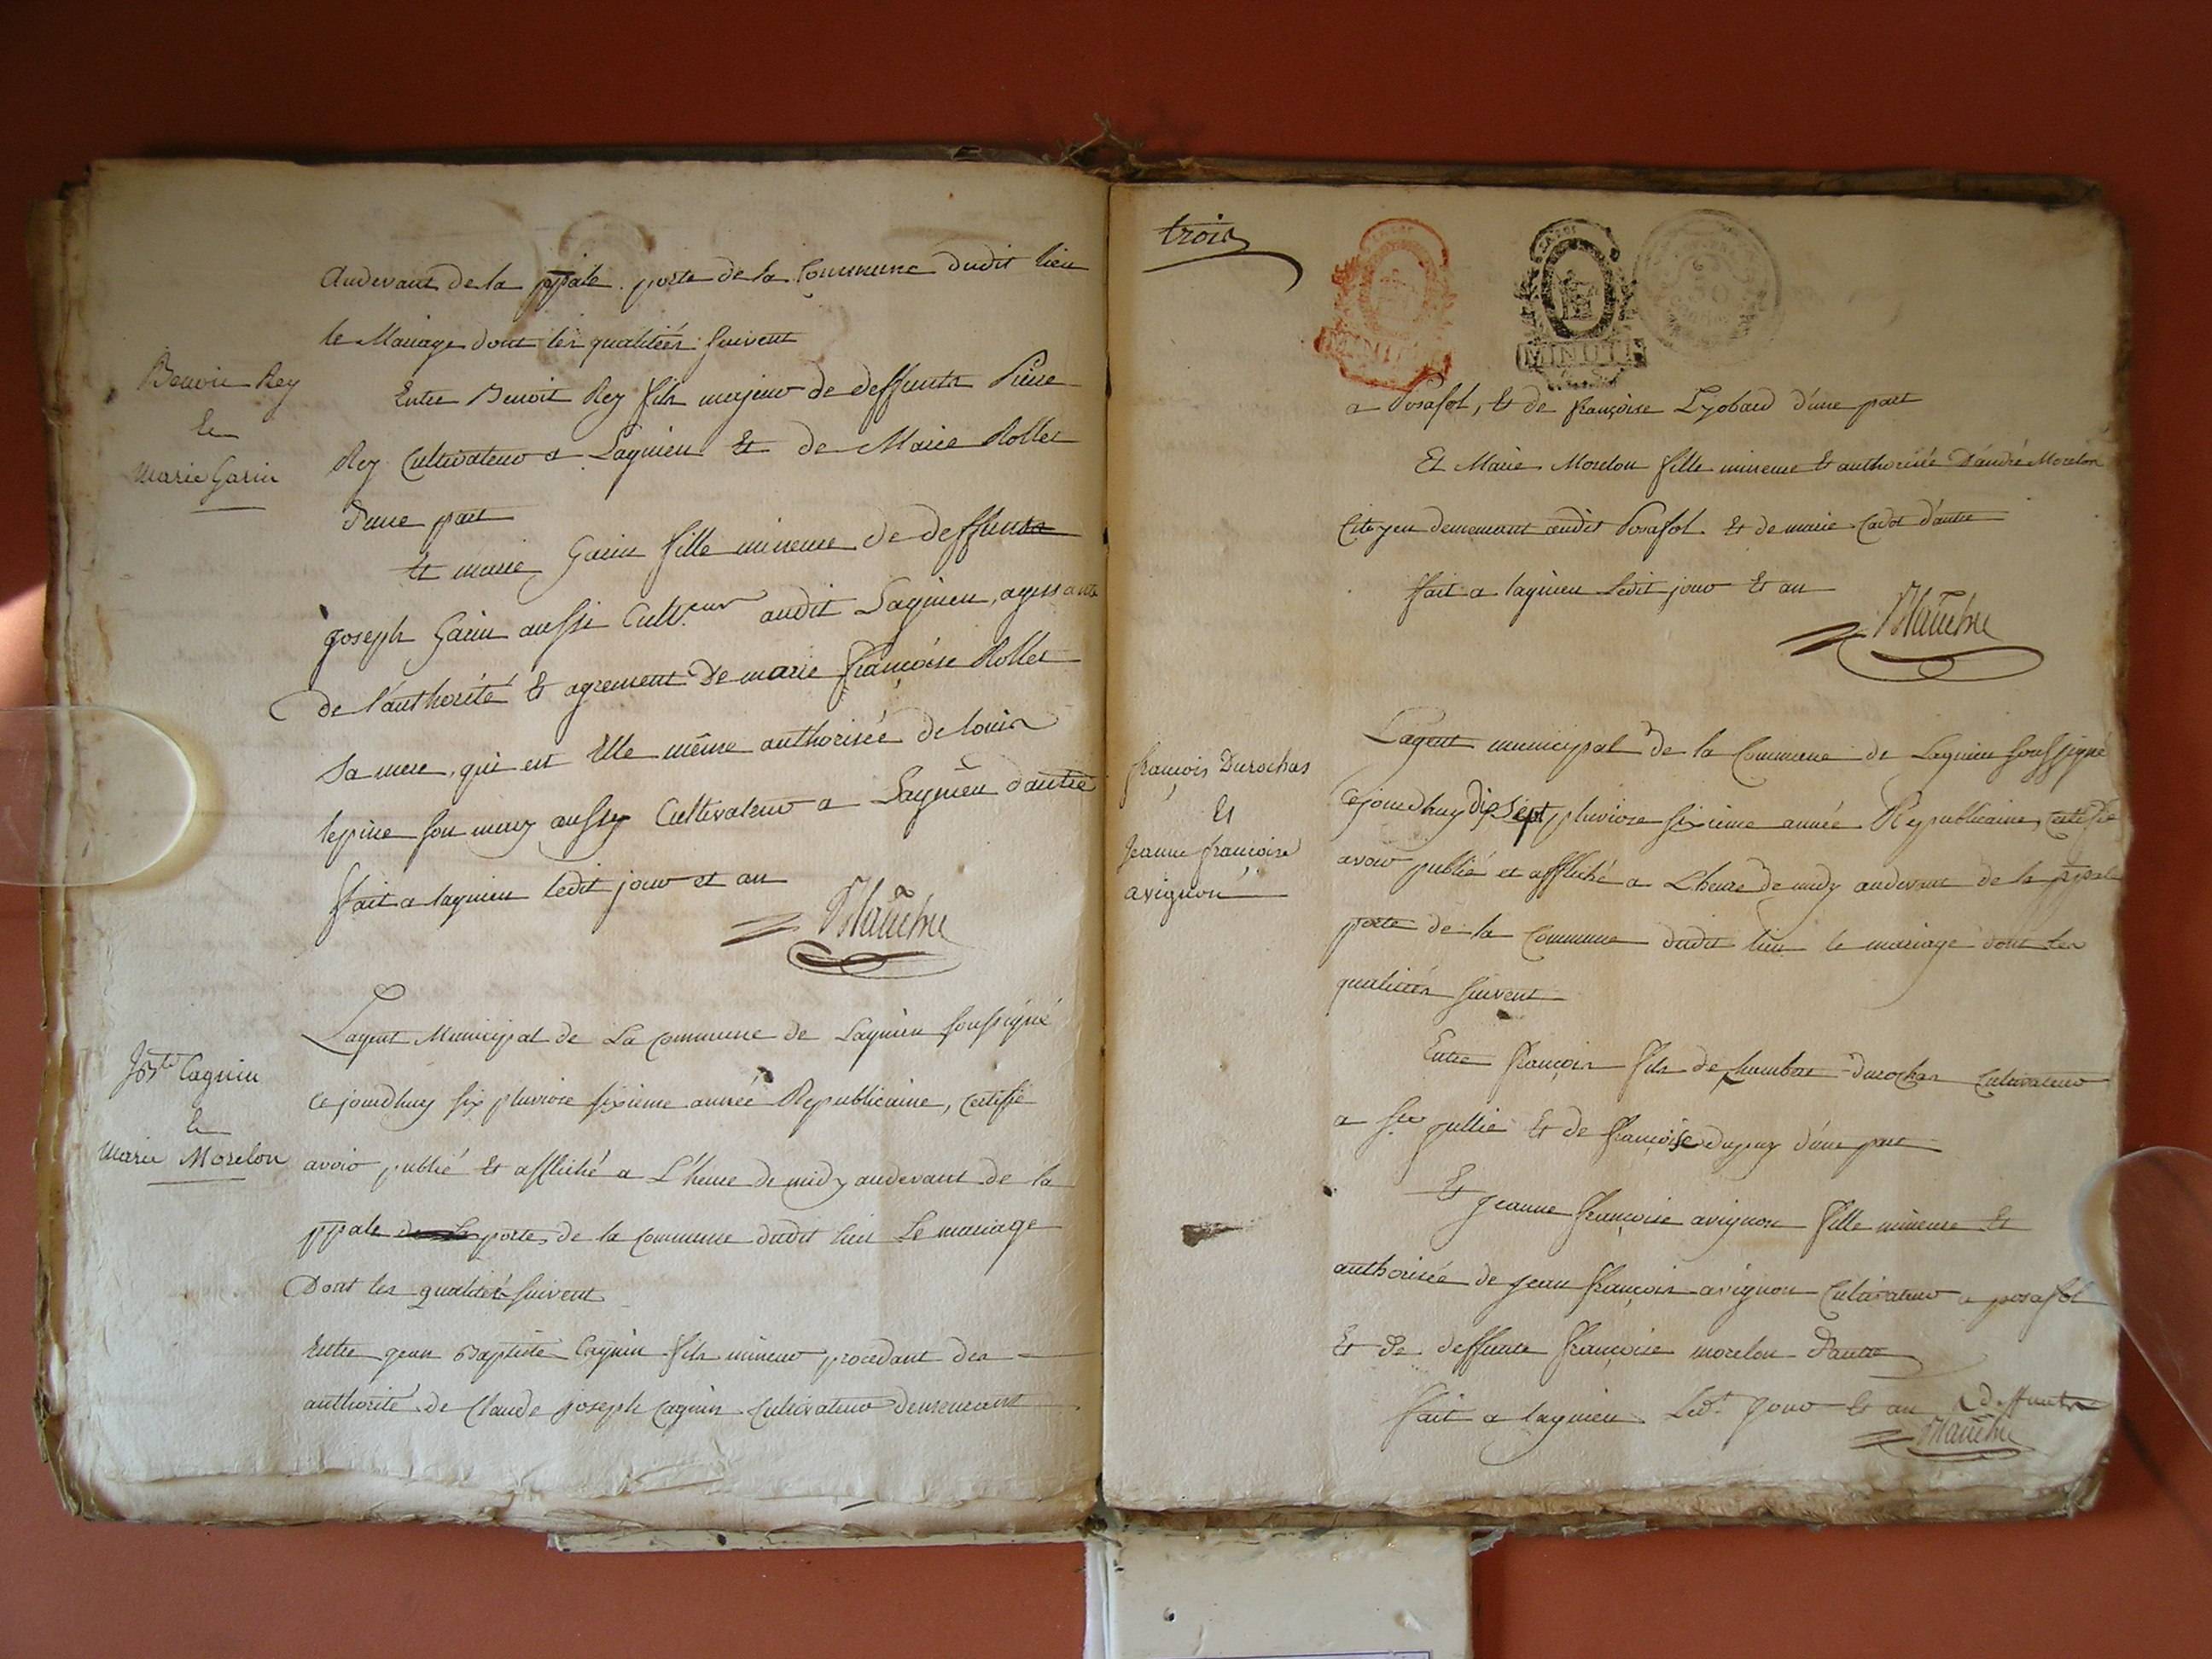 Audevant de la ppale porte de la Commune dudit lieu
le Mariage dont les qualitées suivent
Benoit Rey
Et
Marie Garin
Entre Benoit Rey fils majeur de deffunts Pierre
Rey Cultivateur a Lagnieu Et de Marie Rollet
d'une part
Et marie Garin fille mineure de deffunt
joseph Garin aussi Cult.eur audit Lagnieu, agissante
de l'authorité & agrement de marie françoise Rollet
Sa mere, qui est Elle même authorisée de louis
lepine son mary aussy Cultivateur a Lagnieu d'autre
fait a lagnieu ledit jour et an
Blanchu
Jn Bte Cagnin
Et
Marie Morelon
Lagent Municipal de La commune de Lagnieu soussigné
Ce jourdhuy six pluviose sixieme année Republicaine, Certifie
avoir publié Et affiché a L'heure de midy audevant de la
ppale porte de la commune dudit lieu Le mariage
Dont les qualités suivent
Entre jean Baptiste Cagnin fils mineur procedant des
authorité de Claude joseph Cagnin Cultivateur demeurant
trois
MINUTE
MINUTE
50
a Posafol, Et de françoise Lyobard d'une part
Et Marie Morelon fille mineure & authorisée D'andré Morelon
Citoyen demeurant audit Posafol Et de marie Cadot d'autre
fait a lagnieu Ledit jour Et an
Blanchu
françois Durochas
Et
Jeanne françoise
avignon
Lagent municipal de la Commune de Lagnieu soussigné
Cejourdhuy dix Sept pluviose sixieme année Republicaine, certifie
avoir publié et affiché a L'heure de midy audevant de la ppale
porte de la Commune dudit lieu le mariage dont les
qualitées suivent
Entre françois fils de humbert Durochas Cultivateur
a Ste jullie Et de françoise dupuy d'une part
Et Jeanne françoise avignon fille mineure Et
authorisée de jean françois avignon Cultivateur a posafol
Et de deffunte françoise morelon D'autre
fait a lagnieu Led.t Jour Et an
Blanchu